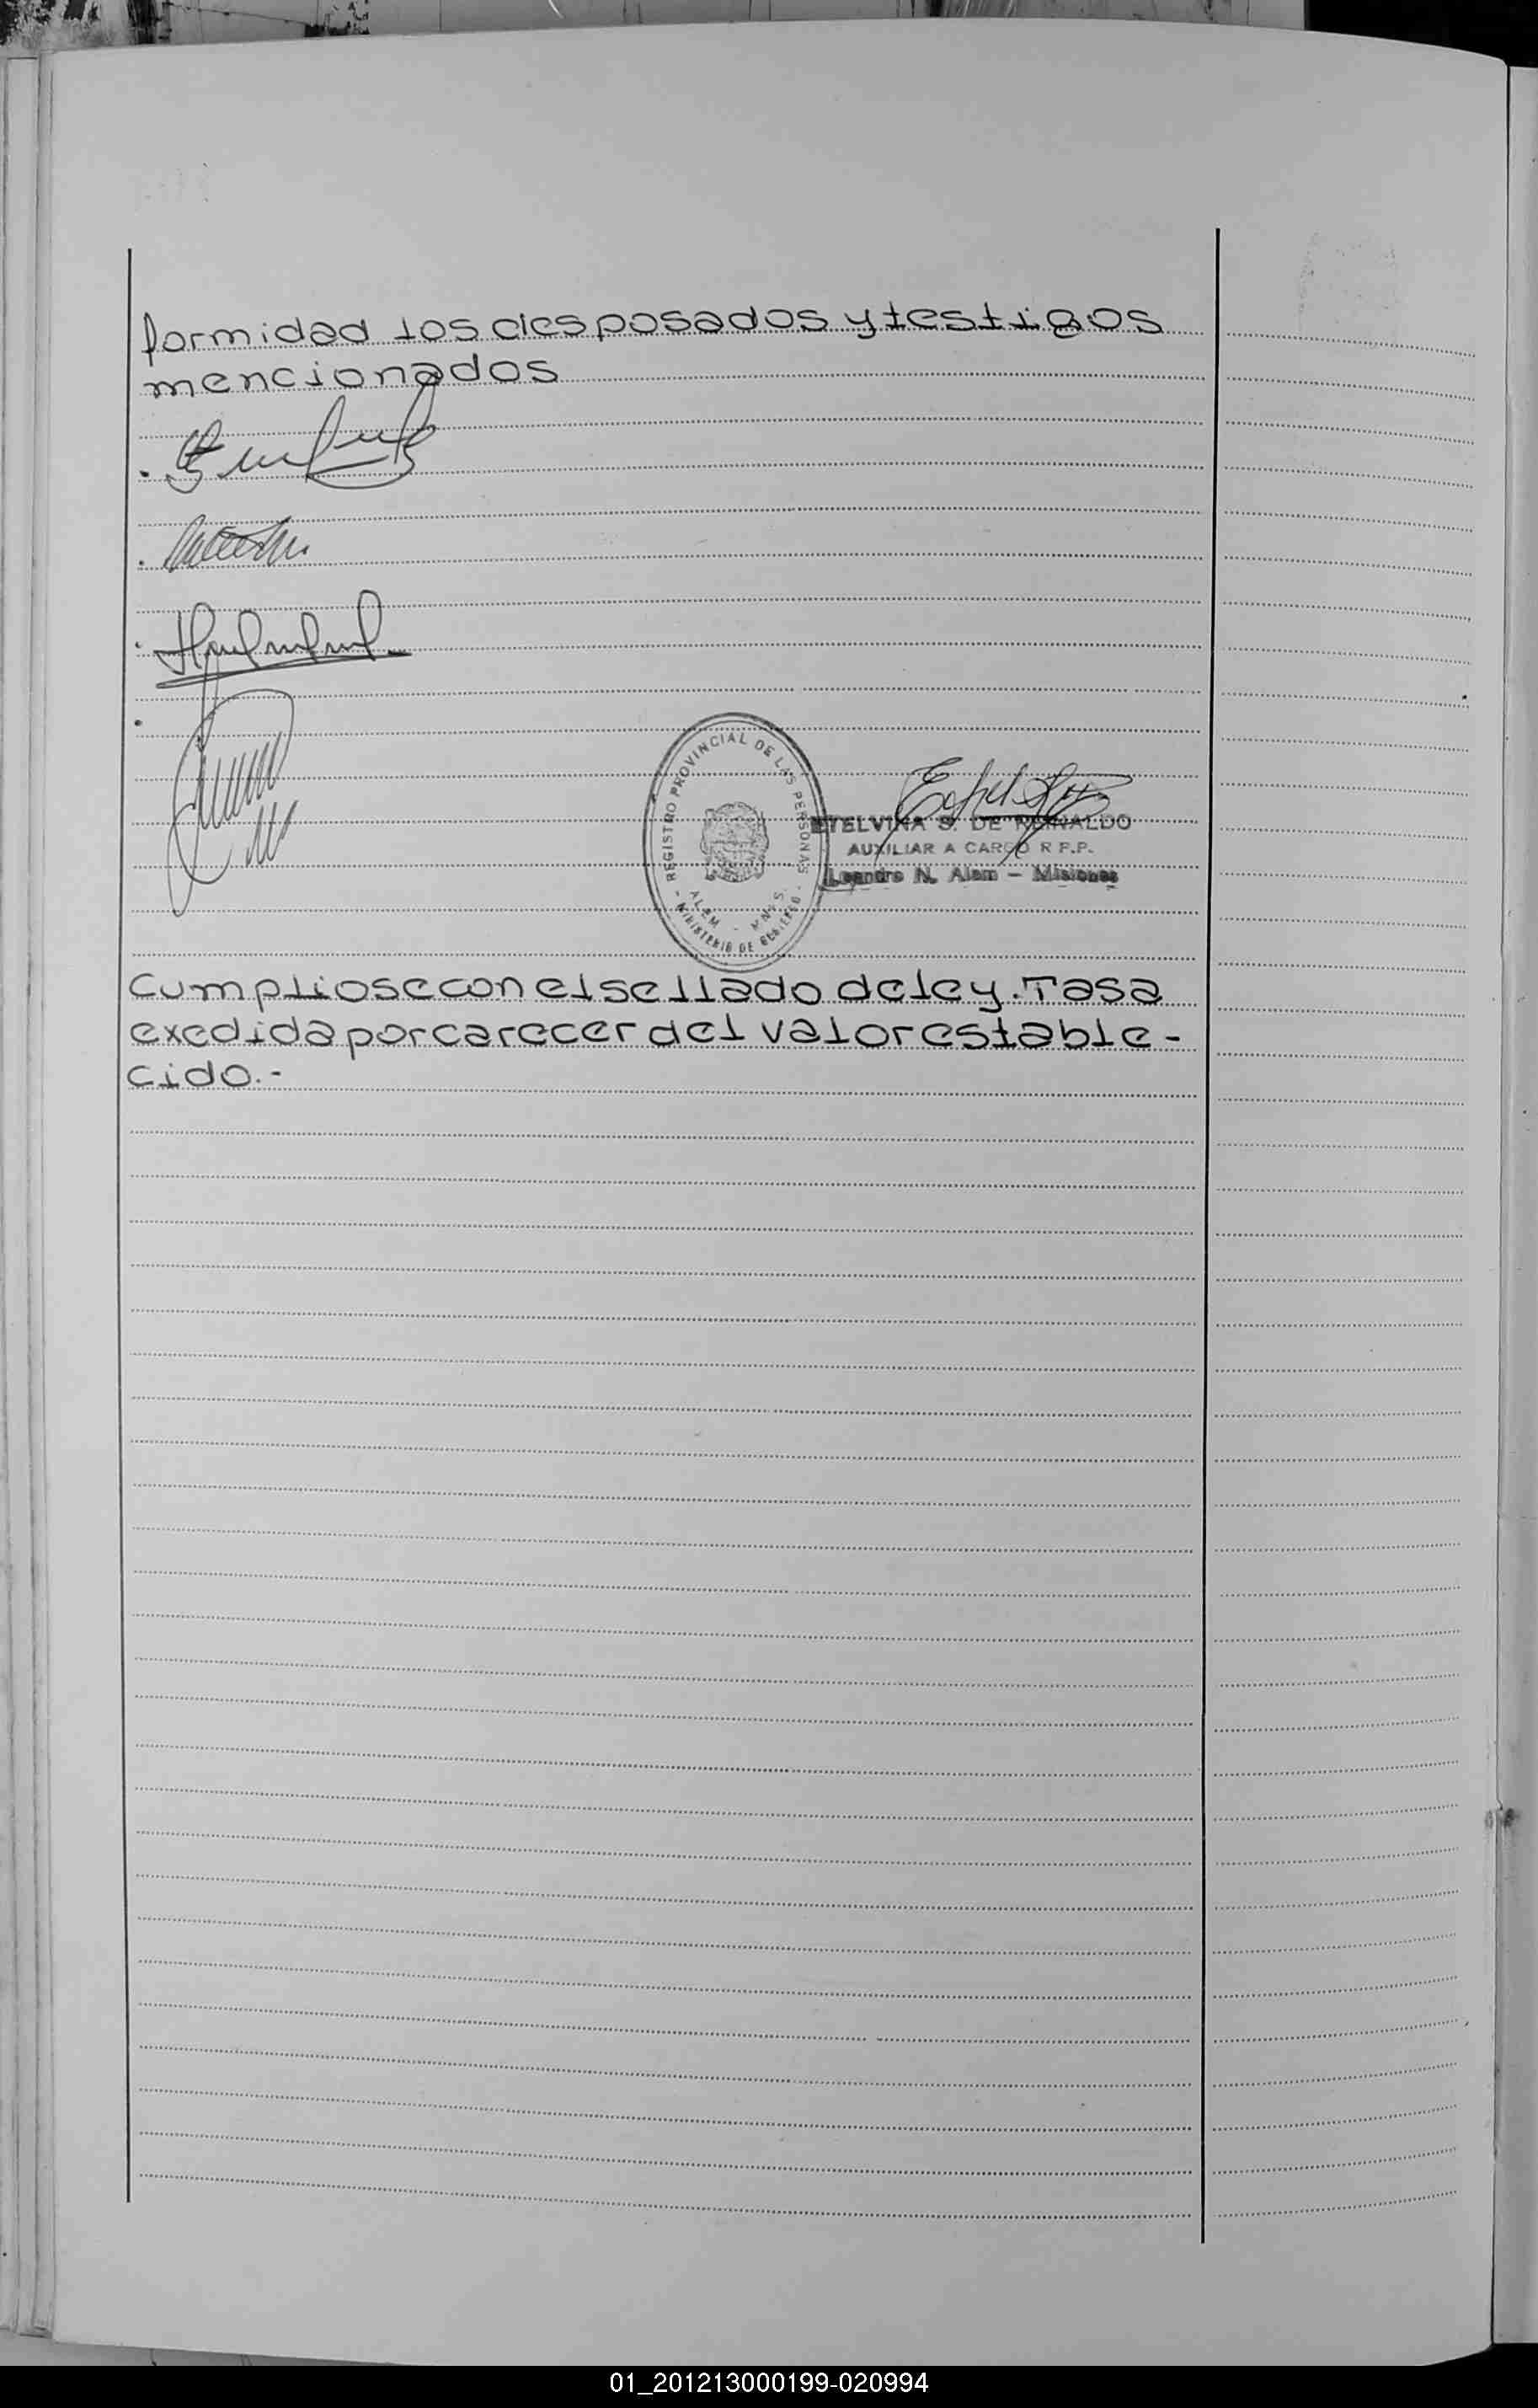 formidad los desposados y testigos
mencionados
REGISTRO PROVINCIAL DE LAS PERSONAS
ALEM - MNES.
- MINISTERIO DE GOBIERNO -
ETELVINA S. DE REINALDO
AUXILIAR A CARGO R.P.P.
Leandro N. Alem - Misiones
Cumpliose con el sellado de ley. Tasa
exedida por carecer del valor estable-
cido.-
01_201213000199-020994